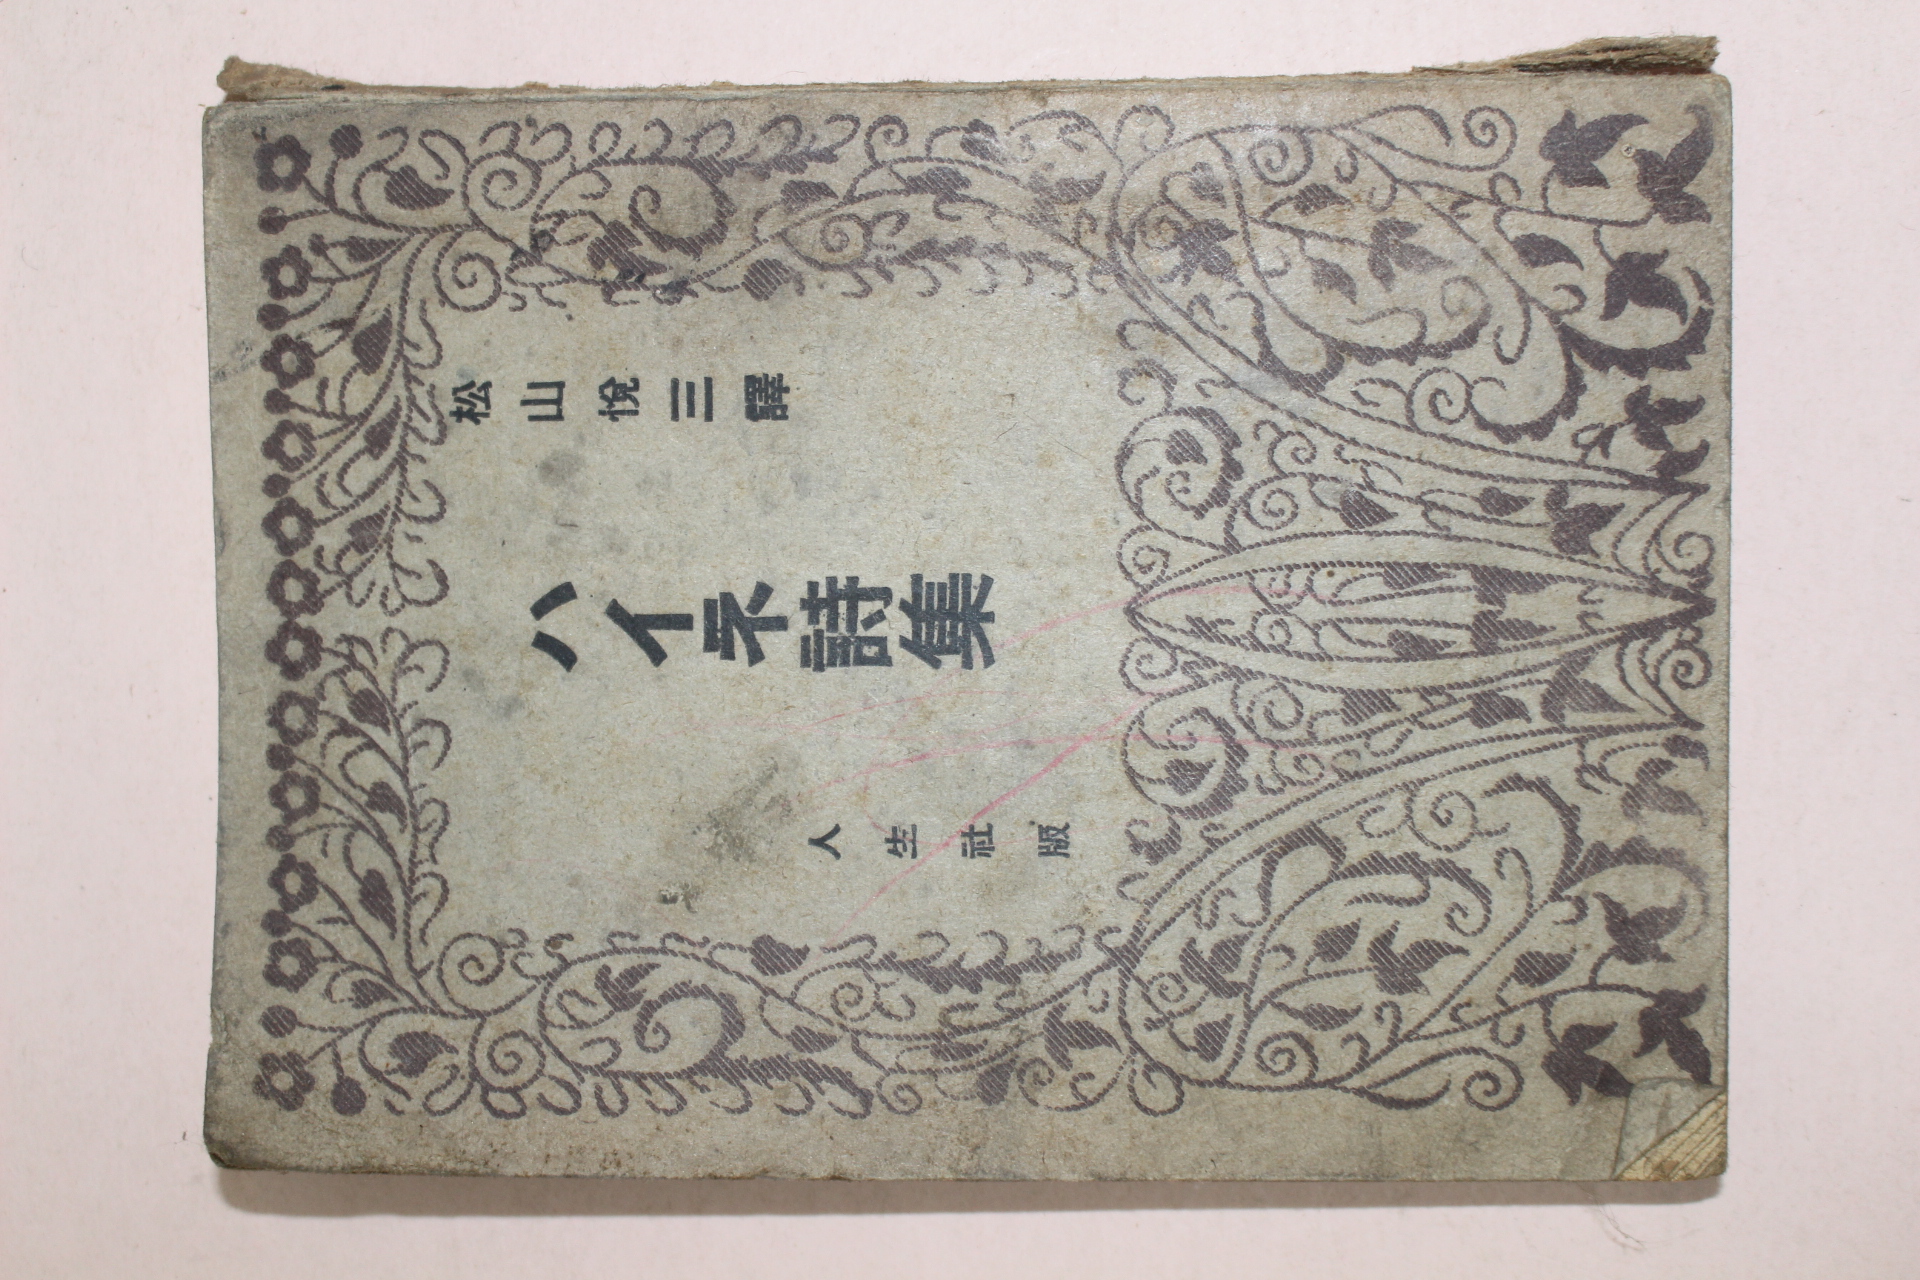 松山悅三譯
ハイネ詩集
人生社版